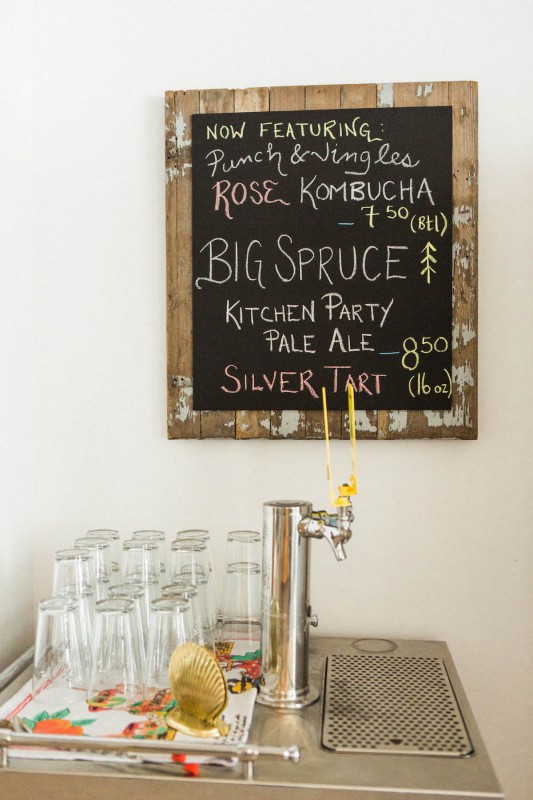 NOW FEATURING:
Punch & Jingles
ROSE KOMBUCHA
– 7 50 (Btl)
BIG SPRUCE
KITCHEN PARTY
PALE ALE – 8 50
SILVER TART (16 oz)